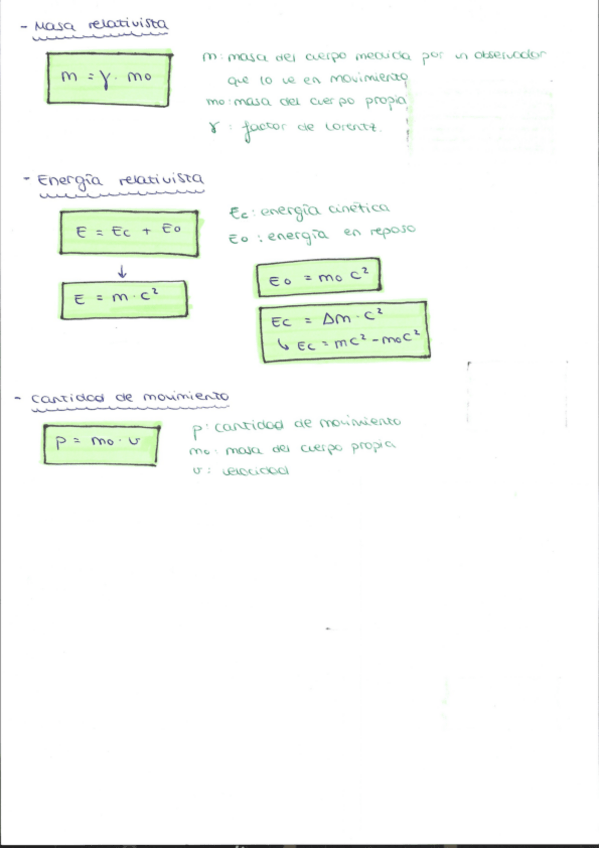 - Masa relativista
m = γ · mo
m: masa del cuerpo medida por un observador
que lo ve en movimiento
mo: masa del cuerpo propia
γ: factor de Lorentz.
- Energía relativista
E = Ec + Eo
Ec: energía cinética
Eo: energía en reposo
↓
E = m · c²
Eo = mo c²
Ec = Δm · c²
↳ Ec = mc² - moc²
- Cantidad de movimiento
p = mo · v
p: cantidad de movimiento
mo: masa del cuerpo propia
v: velocidad